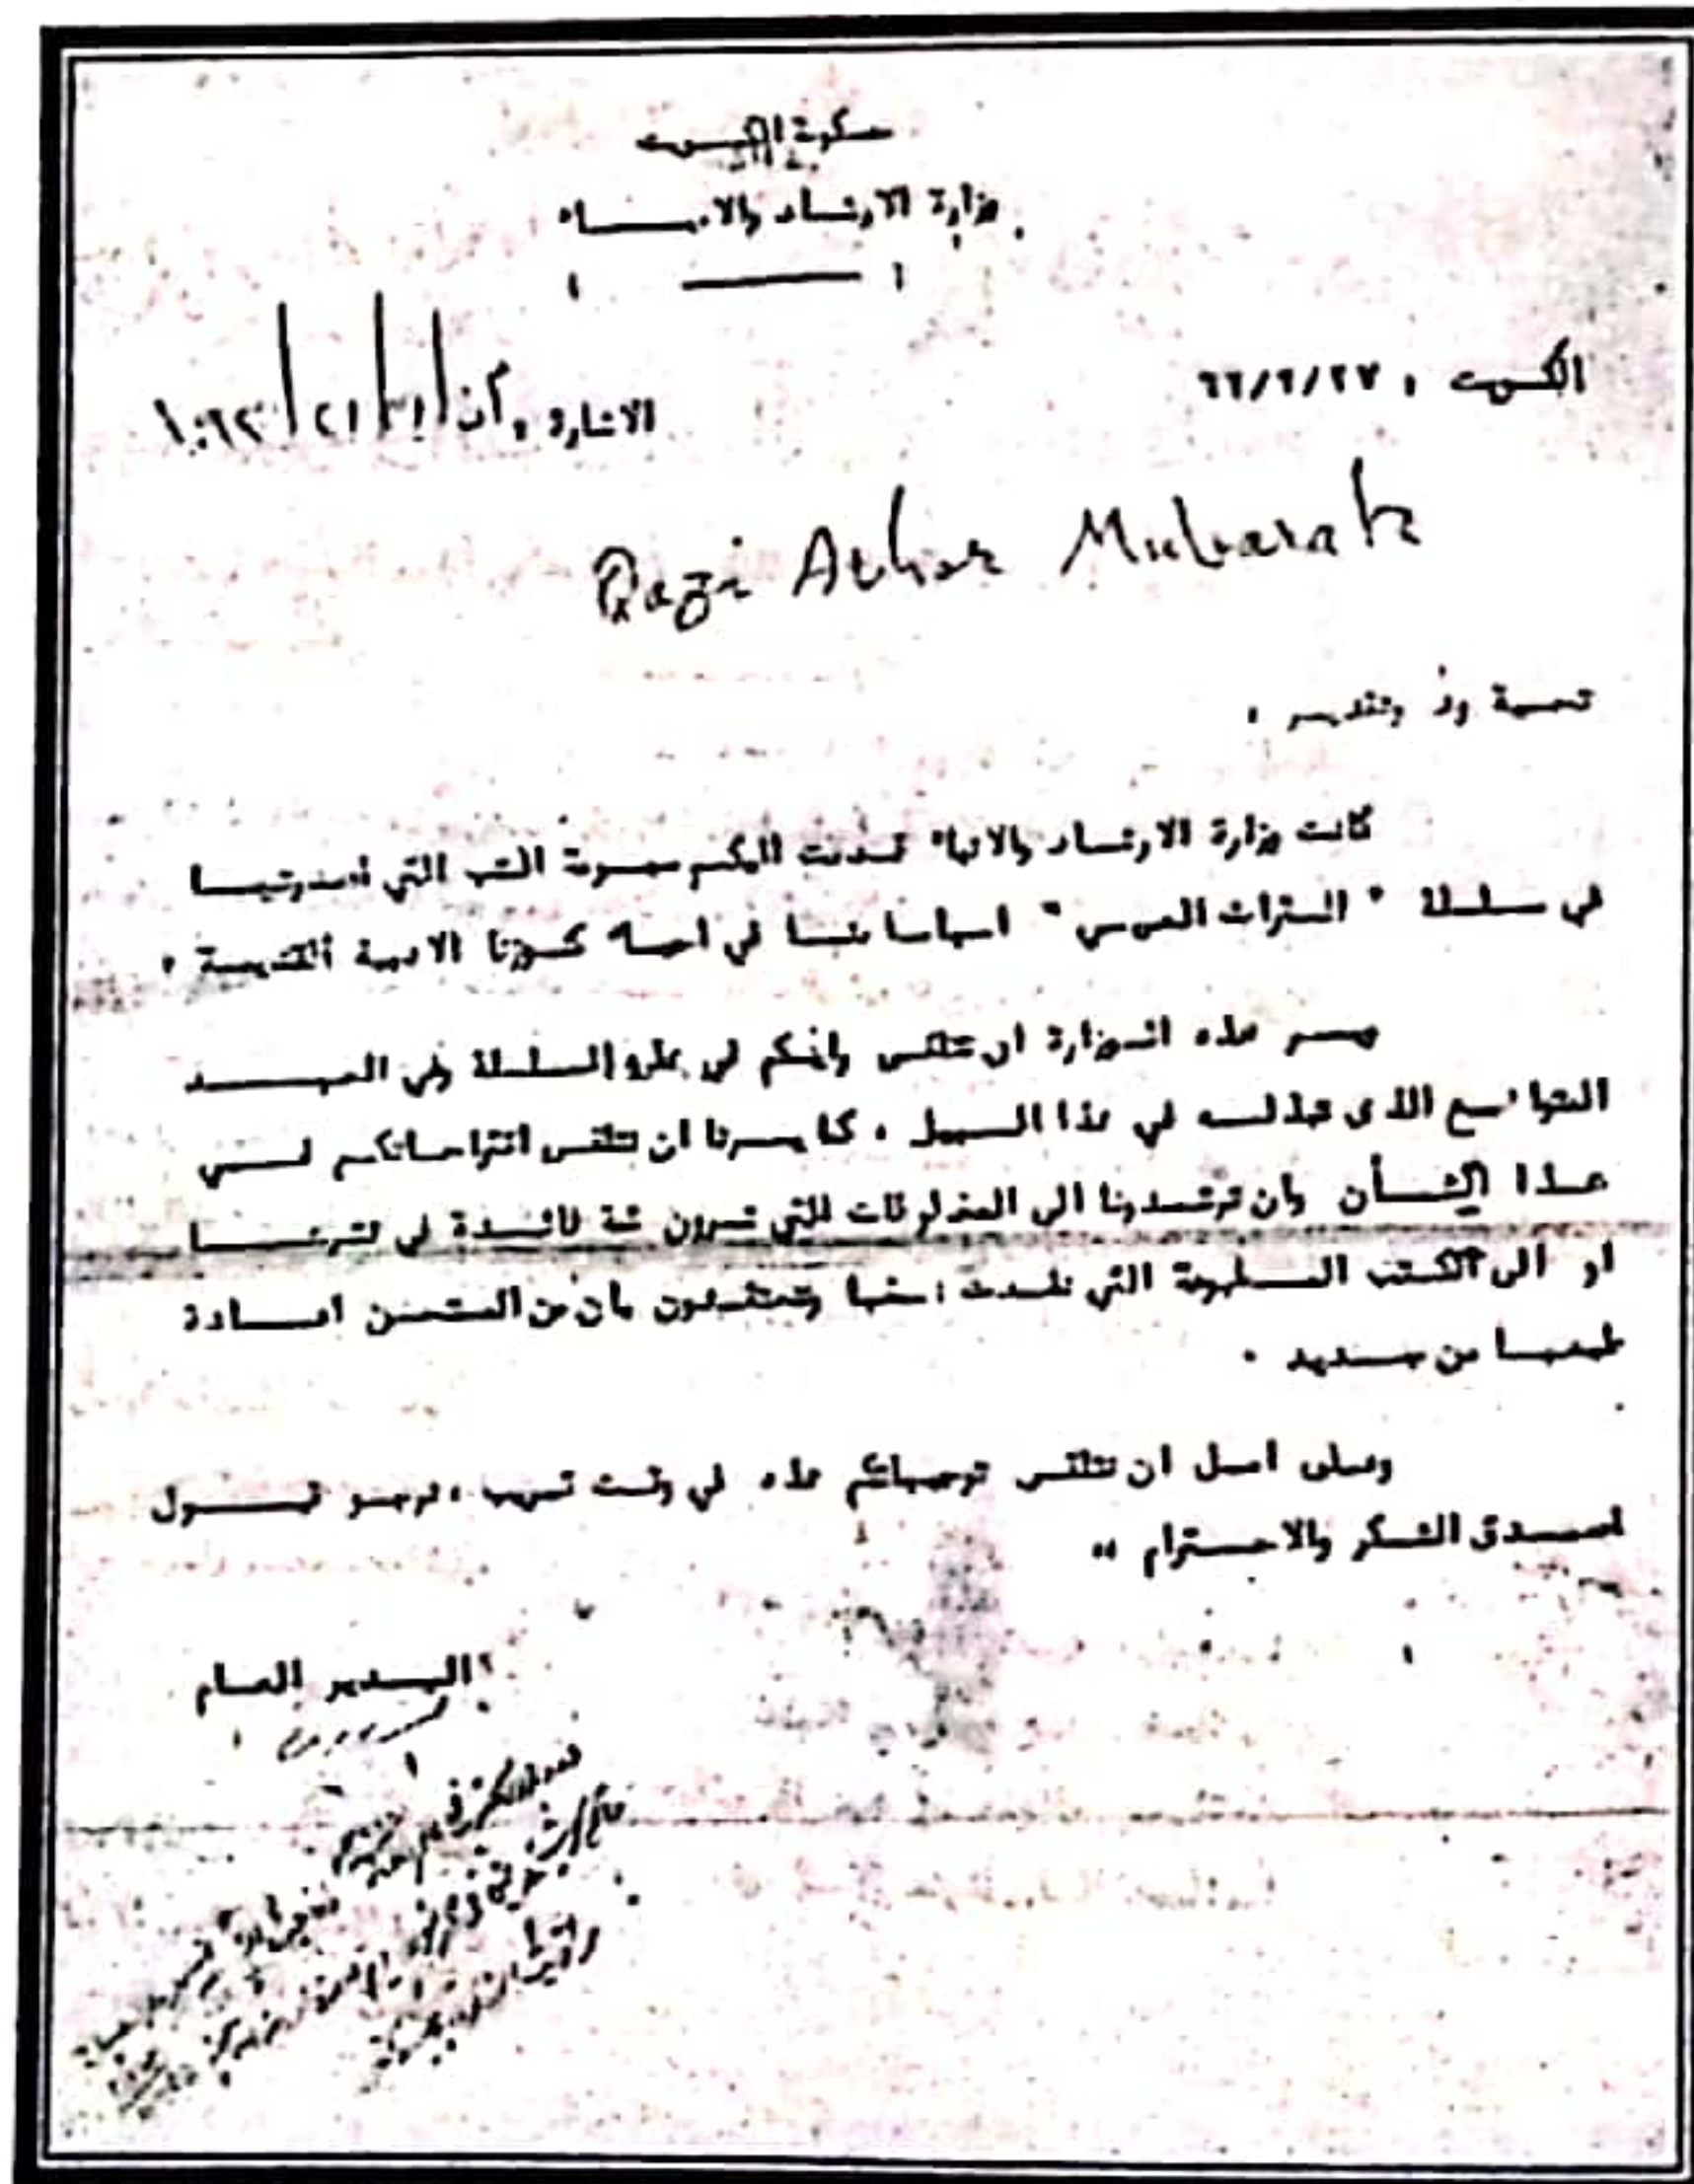 حكومة الكويت
وزارة الارشاد والانباء
الكويت : ٦٦/٩/٢٧
الاشارة :
Qazi Athar Mubarak
تحية ود وتقدير ،
كانت وزارة الارشاد والانباء قدمت اليكم مجموعة الكتب التي أصدرتها
في سلسلة " التراث العربي " اسهاما منها في احياء كنوزنا الادبية القديمة .
ويسر هذه الوزارة ان تتلقى رأيكم في هذه السلسلة وفي الجهد
المتواضع الذي تبذله في هذا السبيل ، كما يسرنا ان نتلقى اقتراحاتكم في
هذا الشأن وان ترشدونا الى المخطوطات التي ترون ثمة فائدة في نشرها
او الى الكتب المطبوعة التي نفدت نسخها وتعتقدون بان من المستحسن اعادة
طبعها من جديد .
وعلى امل ان نتلقى توجيهاتكم هذه في وقت قريب ، نرجو قبول
اصدق الشكر والاحترام ،،
المدير العام